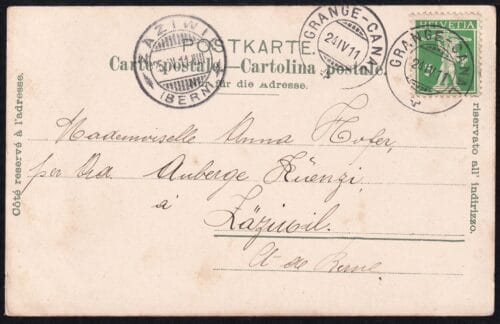 HELVETIA
POSTKARTE
Carte postale. – Cartolina postale.
Nur für die Adresse.
ZÄZIWIL
(BERN)
GRANGE-CANAL
24 IV 11
GRANGE-CANAL
24 IV 11
Côté reservé à l'adresse.
Mademoiselle Anna Hofer,
per Adr. Auberge Küenzi,
à
Zäziwil.
Ct de Berne
Lato riservato all' indirizzo.